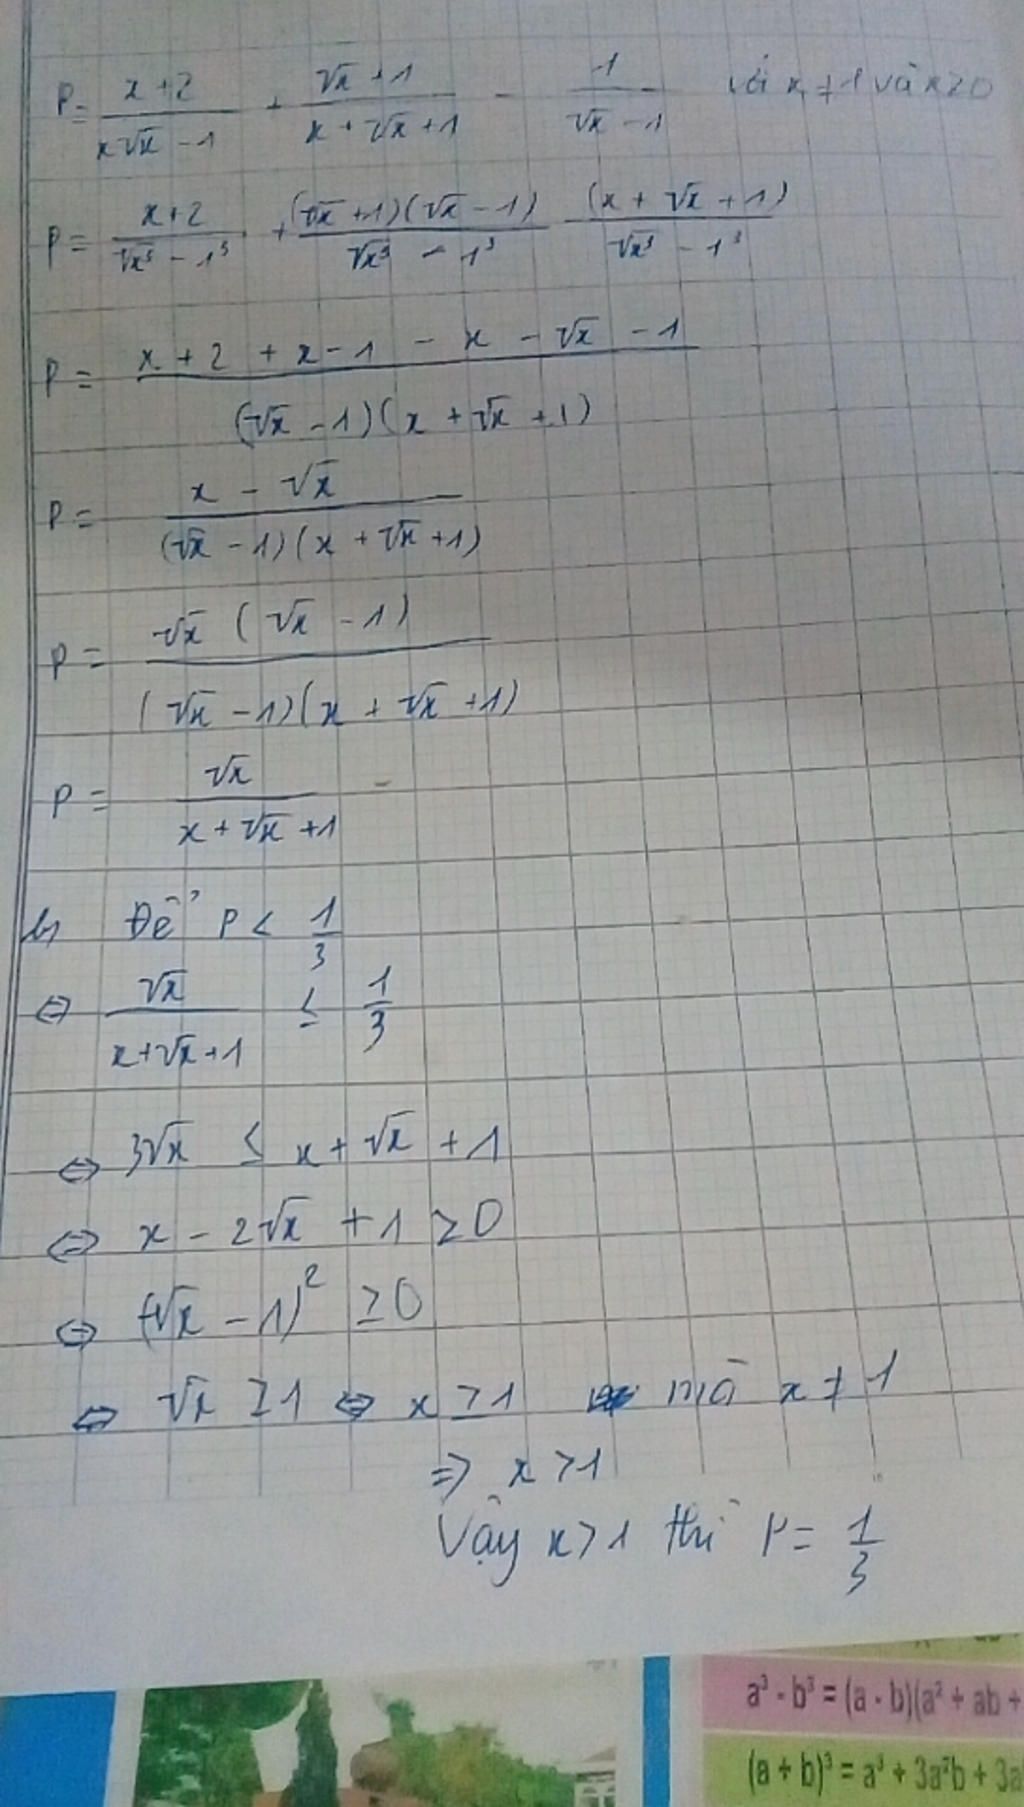 P = \frac{x+2}{x\sqrt{x}-1} + \frac{\sqrt{x}+1}{x+\sqrt{x}+1} - \frac{1}{\sqrt{x}-1} với x ≠ 1 và x ≥ 0
P = \frac{x+2}{\sqrt{x}^3-1^3} + \frac{(\sqrt{x}+1)(\sqrt{x}-1)}{\sqrt{x}^3-1^3} - \frac{(x+\sqrt{x}+1)}{\sqrt{x}^3-1^3}
P = \frac{x+2+x-1-x-\sqrt{x}-1}{(\sqrt{x}-1)(x+\sqrt{x}+1)}
P = \frac{x-\sqrt{x}}{(\sqrt{x}-1)(x+\sqrt{x}+1)}
P = \frac{\sqrt{x}(\sqrt{x}-1)}{(\sqrt{x}-1)(x+\sqrt{x}+1)}
P = \frac{\sqrt{x}}{x+\sqrt{x}+1}
b, Để P < \frac{1}{3}
⇔ \frac{\sqrt{x}}{x+\sqrt{x}+1} ≤ \frac{1}{3}
⇔ 3\sqrt{x} ≤ x + \sqrt{x} + 1
⇔ x - 2\sqrt{x} + 1 ≥ 0
⇔ (\sqrt{x} - 1)^2 ≥ 0
⇔ \sqrt{x} ≥ 1 ⇔ x ≥ 1 mà x ≠ 1
⇒ x > 1
Vậy x > 1 thì P = \frac{1}{3}
a³ - b³ = (a - b)(a² + ab +
(a + b)³ = a³ + 3a²b + 3a